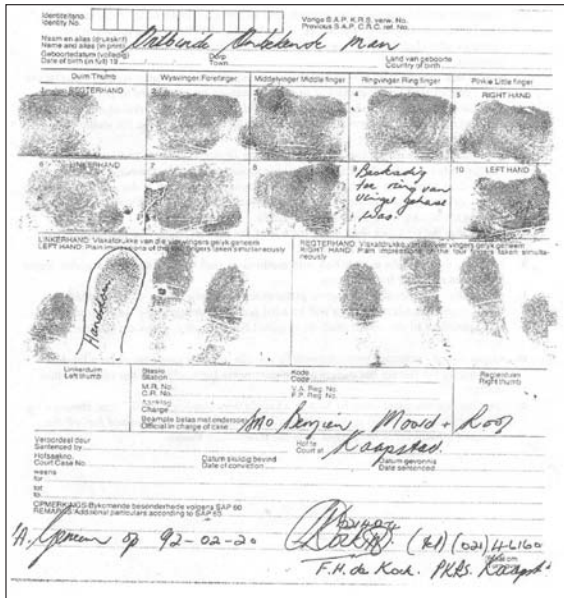 Identiteitsno.
Identity No.
Vorige S.A.P. K.R.S. verw. No.
Previous S.A.P. C.R.C. ref. No.
Naam en alias (drukskrif)
Name and alias (in print) Onbekende Man
Geboortedatum (volledig)
Date of birth (in full) 19
Dorp
Town
Land van geboorte
Country of birth
Duim Thumb
Wysvinger Forefinger
Middelvinger Middle finger
Ringvinger Ring finger
Pinkie Little finger
1 REGTERHAND
2
3
4
5 RIGHT HAND
6 LINKERHAND
7
8
9
toe ring van
was.
10 LEFT HAND
LINKERHAND: Vlakafdrukke van die vier vingers gelyk geneem
LEFT HAND: Plain impressions of the four fingers taken simultaneously
REGTERHAND: Vlakafdrukke van die vier vingers gelyk geneem
RIGHT HAND: Plain impressions of the four fingers taken simulta-
neously
Linkerduim
Left thumb
Stasie
Station
Kode
Code
Regterduim
Right thumb
M.R. No.
C.R. No.
V.A. Reg. No.
F.P. Reg. No.
Aanklag
Charge
Beampte belas met ondersoek
Official in charge of case Benzien, Moord + Roof
Veroordeel deur
Sentenced by
Hof te
Court at Kaapstad.
Hofsaakno.
Court Case No.
Datum skuldig bevind
Date of conviction
Datum gevonnis
Date sentenced
weens
for
tot
to
OPMERKINGS: Bykomende besonderhede volgens SAP 60
REMARKS: Additional particulars according to SAP 60
op 92-02-20
(021) 4-6160
F.H. de Kock. PKRS. Kaapst.